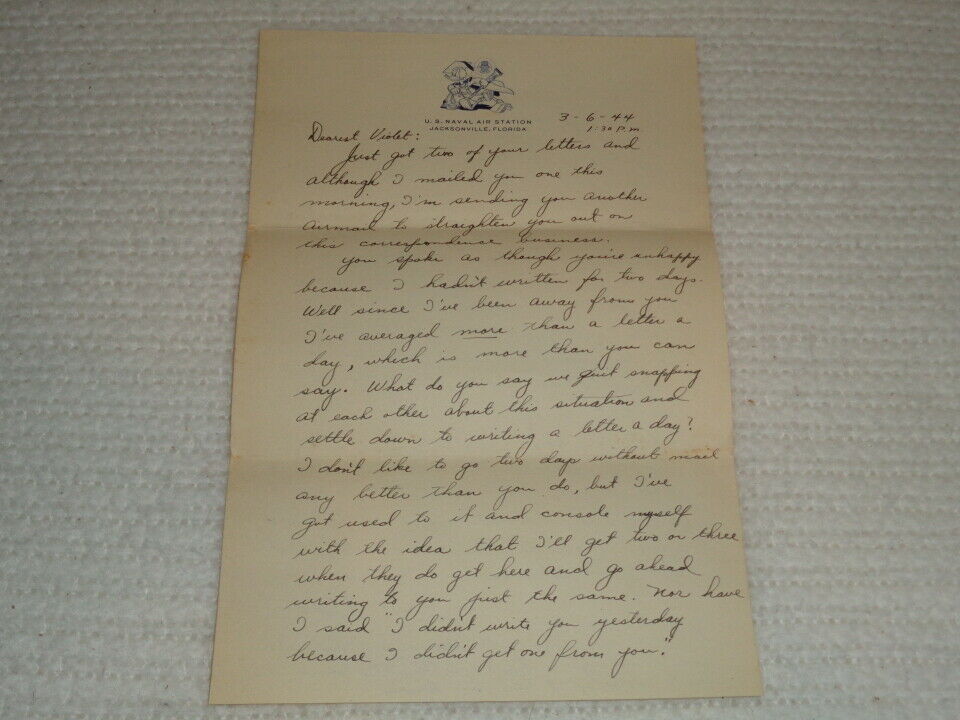 U. S. NAVAL AIR STATION
JACKSONVILLE, FLORIDA
3-6-44
1:30 P.m
Dearest Violet:
Just got two of your letters and
although I mailed you one this
morning, I'm sending you another
airmail to straighten you out on
this correspondence business.
You spoke as though you're unhappy
because I hadn't written for two days.
Well since I've been away from you
I've averaged more than a letter a
day, which is more than you can
say. What do you say we quit snapping
at each other about this situation and
settle down to writing a letter a day?
I don't like to go two days without mail
any better than you do, but I've
got used to it and console myself
with the idea that I'll get two or three
when they do get here and go ahead
writing to you just the same. Nor have
I said "I didn't write you yesterday
because I didn't get one from you."